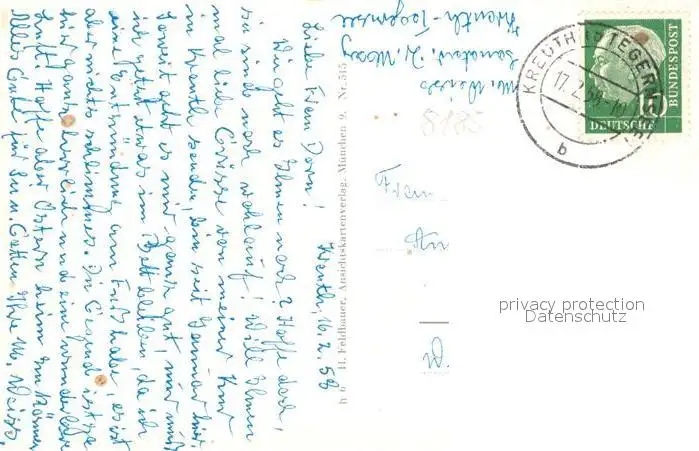 Kreuth, 16.2.58
Liebe Frau Dorn!
Wie geht es Ihnen noch? Hoffe doch,
sie sind noch wohlauf! Will Ihnen
mal liebe Grüsse von meiner Kur
in Kreuth senden, bin seit Januar hier.
Soweit geht es mir ganz gut, nur muß
ich jetzt etwas im Bett bleiben, da ich
eine Entzündung am Fuß habe, es ist
aber nichts schlimmes. Die Gegend ist ja
hier ganz herrlich und eine wunderbare
Luft. Hoffe aber Ostern heim zu können
Alles Gute für Sie u. Gatten Ihre M. Weiss.
M. Weiss
Sanator. Dr. May
Kreuth-Tegernsee
h 6 H. Feldbauer, Ansichtskartenverlag, München 9, Nr. 515
8185
Frau
An
W.
KREUTH ü. TEGERNSEE
17.2.58
b
DEUTSCHE
BUNDESPOST
10
privacy protection
Datenschutz